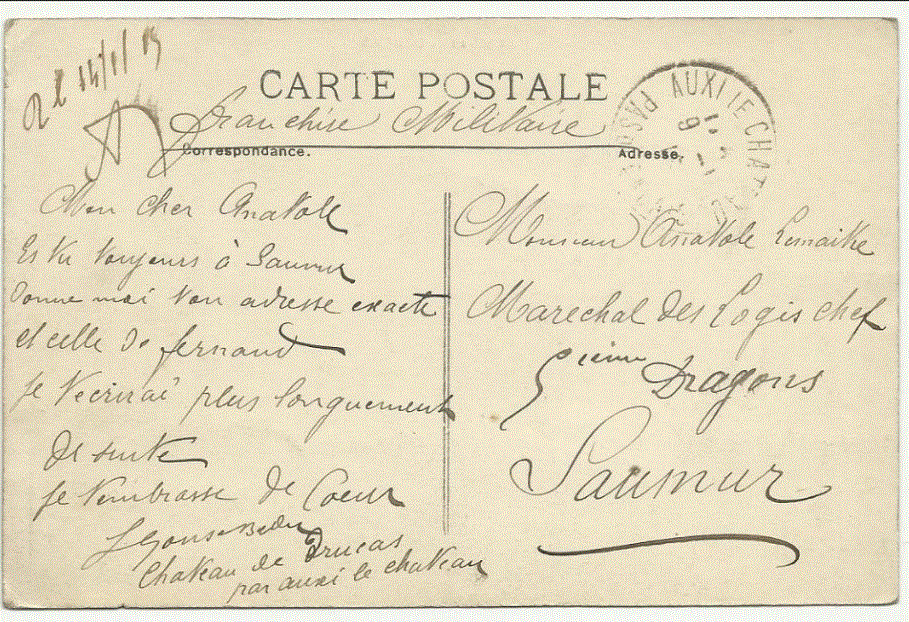 CARTE POSTALE
Franchise Militaire
Correspondance.
Adresse.
AUXI LE CHAT
PAS
Mon cher Anatole
Es tu toujours à Saumur
Donne moi ton adresse exacte
et celle de fernand
Je t'ecrirai plus longuement
De suite
Je t'embrasse De Coeur
Chateau de Drucas
par auxi le chateau
Monsieur Anatole Lemaitre
Marechal Des Logis chef
5ieme Dragons
Saumur